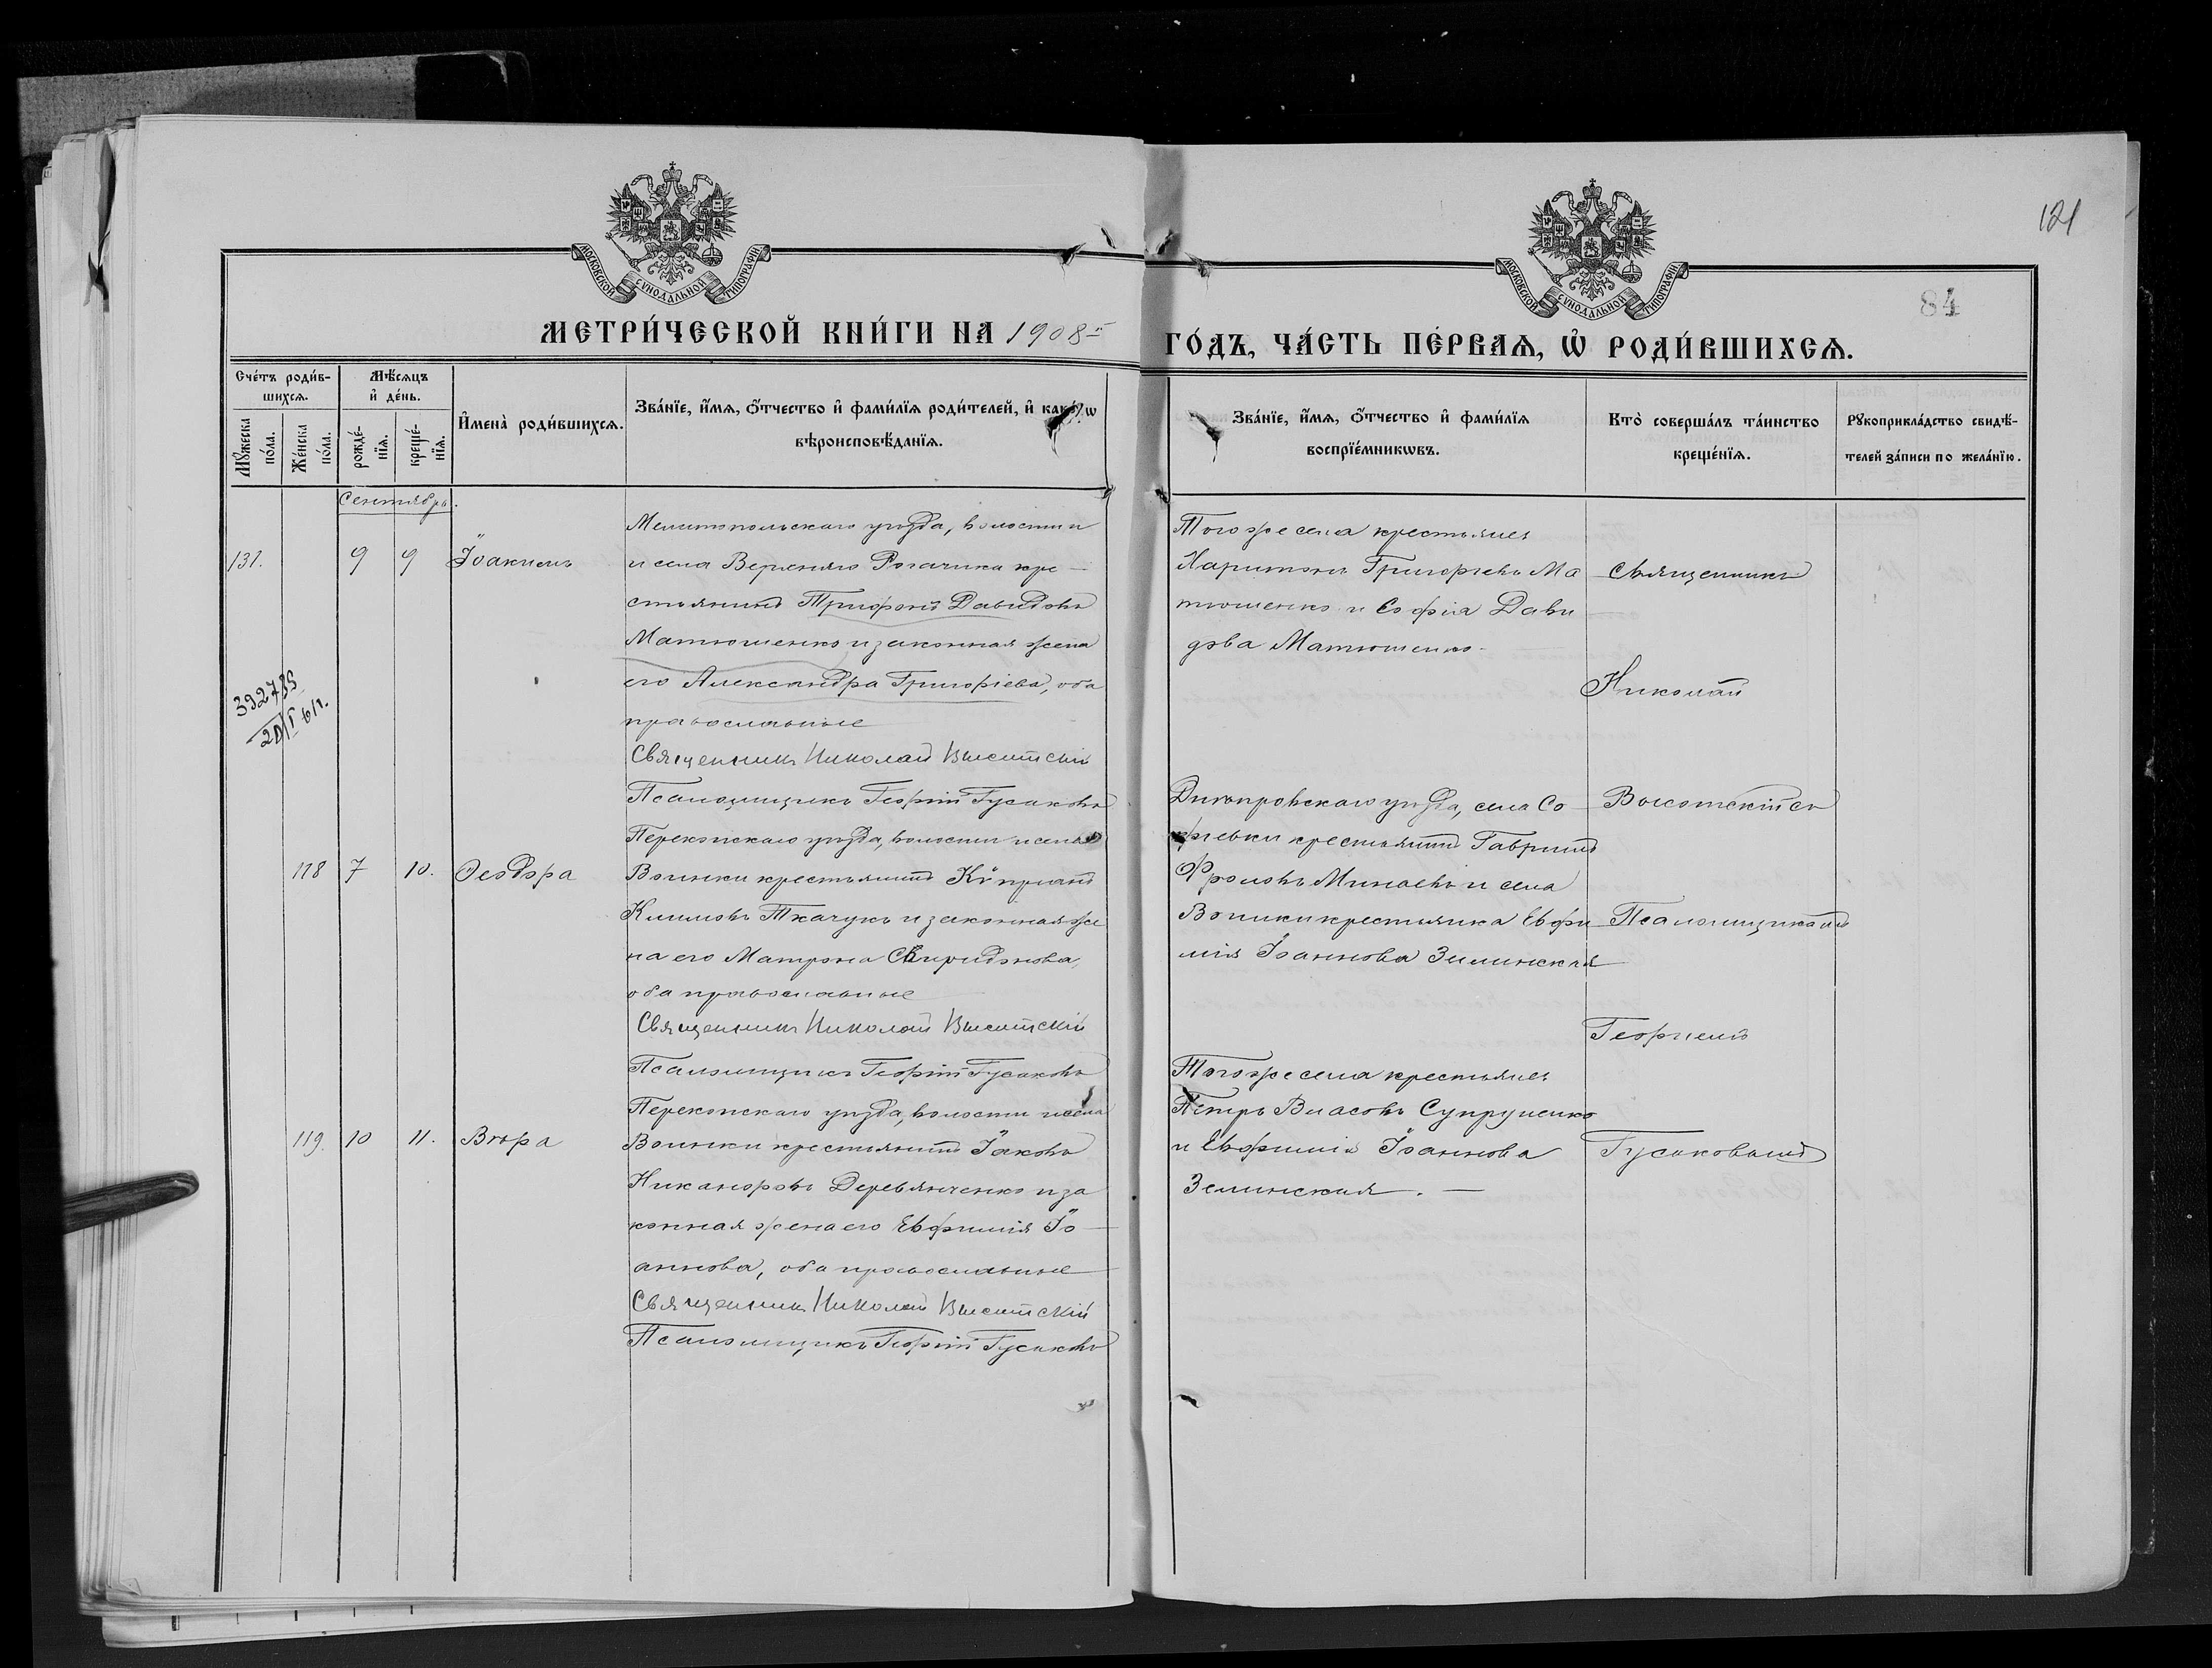 121
84
МОСКОВСКОЙ СѴНОДАЛЬНОЙ ТИПОГРАФІИ
МОСКОВСКОЙ СѴНОДАЛЬНОЙ ТИПОГРАФІИ
МЕТРИ́ЧЕСКОЙ КНИ́ГИ НА 1908й ГО́ДЪ, ЧА́СТЬ ПЕ́РВАѦ, Ѡ҆ РОДИ́ВШИХСѦ.
Сче́тъ роди́в-
шихсѧ.
Мꙋ́жеска по́ла.
Же́нска по́ла.
Мѣ́сѧцъ
и҆ де́нь.
рожде́-
нїѧ.
креще́-
нїѧ.
И҆мена̀ роди́вшихсѧ.
Зва́нїе, и҆́мѧ, ѻ҆́тчество и҆ фами́лїѧ роди́телей, и҆ како́гѡ
вѣроисповѣ́данїѧ.
Зва́нїе, и҆́мѧ, ѻ҆́тчество и҆ фами́лїѧ
воспрїе́мникѡвъ.
Кто̀ соверша́лъ та́инство
креще́нїѧ.
Рꙋкоприкла́дство свидѣ́-
телей за́писи по жела́нїю.
Сентябрь.
131. 9 9 Іоакимъ
Мелитопольскаго уѣзда, волости
и села Верхняго Рогачика кре-
стьянинъ Трифонъ Давидовъ
Матюшенко и законная жена
его Александра Григоріева, оба
православные
Священникъ Николай Высотскій
Псаломщикъ Георгій Гусаковъ
Тогоже села крестьянинъ
Харитонъ Григорьевъ Ма
тюшенко и Софія Дави
дова Матюшенко.
39278
118 7 10. Ѳеодора
Перекопскаго уѣзда, волости и села
Воинки крестьянинъ Кѵпріанъ
Климовъ Ткачукъ и законная же
на его Матрона Спиридонова,
оба православные
Священникъ Николай Высотскій
Псаломщикъ Георгій Гусаковъ
Днѣпровскаго уѣзда, села Со
фіевки крестьянинъ Гавріилъ
Фроловъ Минаевъ и села
Воинки крестьянка Евфи
мія Іоаннова Зелинская
119. 10 11. Вѣра
Перекопскаго уѣзда, волости и села
Воинки крестьянинъ Іаковъ
Никаноровъ Деревянченко и за
конная жена его Евфимія Іо-
аннова, оба православные
Священникъ Николай Высотскій
Псаломщикъ Георгій Гусаковъ
Тогоже села крестьянинъ
Петръ Власовъ Супруненко
и Евфимія Іоаннова
Зелинская.
Священникъ
Николай
Высотскій съ
Псаломщикомъ
Георгіемъ
Гусаковымъ